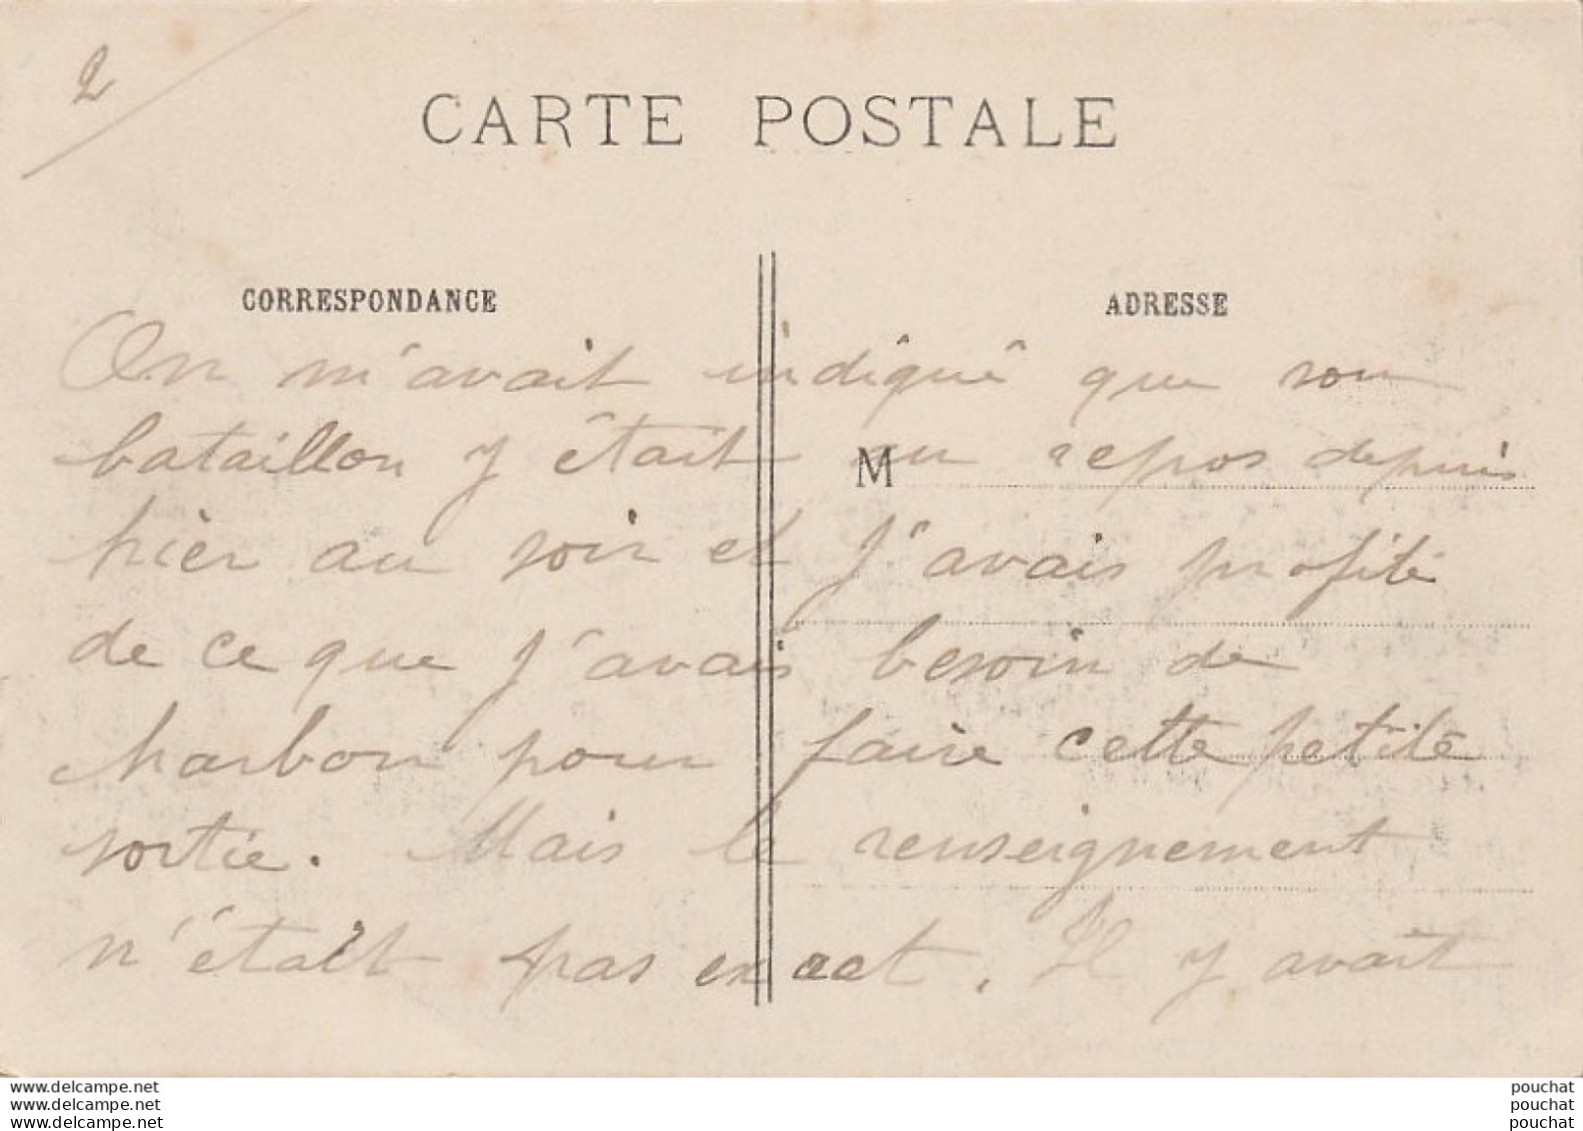 2
CARTE POSTALE
CORRESPONDANCE
ADRESSE
On m'avait indiqué que son
bataillon y était au repos depuis
M
hier au soir et j'avais profité
de ce que j'avais besoin de
charbon pour faire cette petite
sortie. Mais le renseignement
n'était pas exact. Il y avait
www.delcampe.net
www.delcampe.net
www.delcampe.net
pouchat
pouchat
pouchat